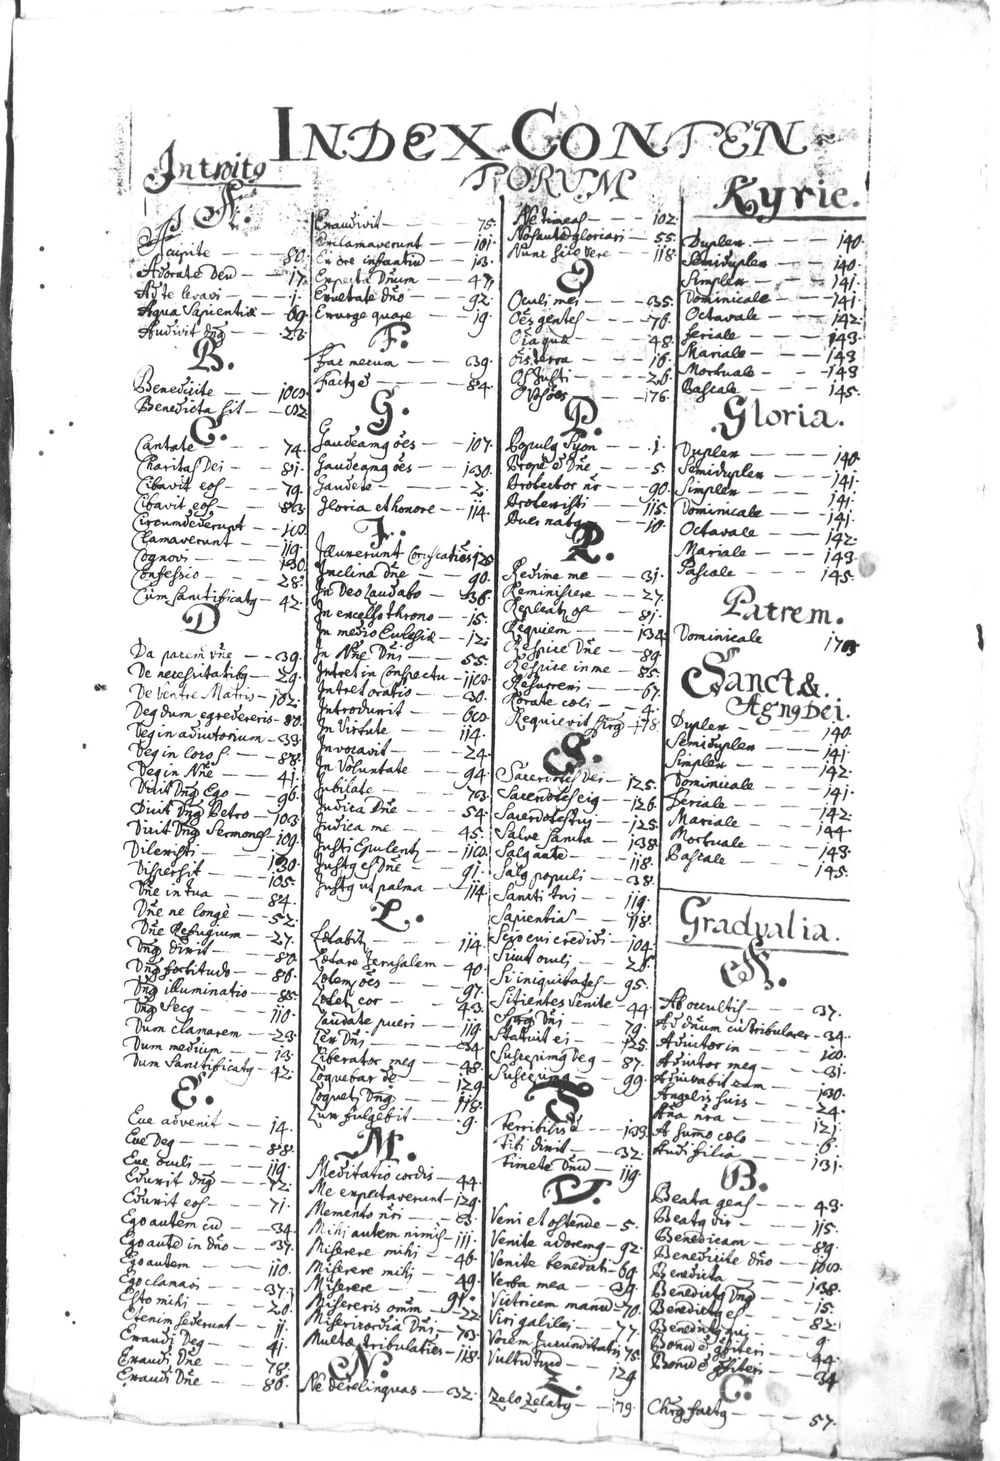 INDEX CONTEN~
TORVM
Introitq
A.
Accipite — 80.
Adorate Deū — 17.
Ad te levavi — 1.
Aqua Sapientiæ — 69.
Audivit dnq — 23.
B.
Benedicite —
Benedicta sit —
C.
Cantate — 74.
Charitas Dei — 81.
Cibavit eos — 79.
Cibavit eos —
Circumdederunt —
Clamaverunt — 119.
Cognovi — 130.
Confessio — 28.
Cum sanctificatq — 42.
D
Da pacem Dñe — 39.
De necessitatibq — 29.
De Ventre Matris — 102.
Deq dum egredereris — 80.
Deq in adiutorium — 33.
Deq in loco s — 88.
Deq in Nñe — 41.
Dicit Dnq Ego — 96.
Dicit Dnq Petro — 103.
Dicit Dnq Sermones — 109.
Dilexisti — 130.
Dispersit — 105.
Dñe in tua — 84.
Dñe ne longè — 52.
Dñe Refugium — 27.
Dnq dixit —
Dnq fortitudo — 86.
Dnq illuminatio — 85.
Dnq Secq — 110.
Dum clamarem — 23.
Dum medium — 13.
Dum Sanctificatq — 42.
E.
Ecce advenit — 14.
Ecce Deq — 88.
Ecce oculi — 119.
Eduxit dnq — 72.
Eduxit eos — 71.
Ego autem cū — 34.
Ego autē in dño — 37.
Ego autem — 110.
Ego clamavi — 37.
Esto mihi — 20.
Etenim sederunt — 11.
Exaudi Deq — 41.
Exaudi Dñe — 78.
Exaudi Dñe — 86.
Exaudivit — 75.
Exclamaverunt — 101.
Ex ore infantiū — 13.
Expecta Dñum — 47.
Exultate dño — 92.
Exurge quare — 19.
F.
Fac mecum — 39.
Factq ē — 84.
G.
Gaudeamq ões — 107.
Gaudeamq ões — 130.
Gaudete — 2.
Gloria et honore — 114.
I.
Illuxerunt Coruscatiões 125
Inclina Dñe — 90.
In Deo Laudabo — 36.
In excelso throno — 15.
In medio Eclesiæ — 12.
In Nñe Dñi — 55.
Intret in Conspectu —
Intret oratio — 30.
Introduxit —
In Virtute — 114.
Invocavit — 24.
In Voluntate — 94.
Iubilate — 73.
Iudica Dñe — 54.
Iudica me — 45.
Iusti Epulentq —
Iustq es Dñe — 91.
Iustq ut palma — 114.
L.
Lætabitq — 114.
Lætare Jerusalem — 40.
Lætem ões — 97.
Lætetq cor — 43.
Laudate pueri — 119.
Lex Dñi — 34.
Liberator meq — 48.
Loquebar de — 129.
Loquetq Dnq — 118.
Lux fulgebit — 9.
M.
Meditatio cordis — 44.
Me expectaverunt — 129.
Memento nr̄i —
Mihi autem nimis — 111.
Miserere mihi — 46.
Miserere mihi — 49.
Miserere — 91.
Misereris omm — 22.
Misericordia Dñi — 73.
Multæ tribulatiēs — 118.
N.
Ne derelinquas — 32.
Ne timeas — 102.
Nos autē gloriari — 55.
Nunc scio vere — 118.
O
Oculi mei — 35.
Oēs gentes — 76.
Oīa quæ — 48.
Oīs terra — 16.
Os Iusti — 26.
— 176.
P.
Populq Syon — 1.
Propè ē Dñe — 5.
Protector nr — 90.
Protexisti — 115.
Puer natq — 10.
R.
Redime me — 31.
Reminiscere — 27.
Repleatq os — 81.
Requiem — 134.
Respice Dñe — 89.
Respice in me — 85.
Resurrexi — 67.
Rorate cœli — 4.
Requievit — 178.
S.
Sacerdotes Dei — 125.
Sacerdotes eiq — 126.
Sacerdotes tui — 125.
Salve Sancta — 138.
Salq autē — 118.
Salq populi — 38.
Sancti tui — 119.
Sapientiā — 118.
Scio cui credidi — 104.
Sicut oculi — 26.
Si iniquitates — 95.
Sitientes Venite — 44.
Spirq Dñi — 79.
Statuit ei — 125.
Suscepimq Deq — 87.
Suscepimq — 99.
T
Terribilis ē — 139.
Tibi dixit — 32.
Timete Dnū — 119.
V.
Veni et ostende — 5.
Venite adoremq — 92.
Venite benedicti — 69.
Verba mea — 34.
Victricem manū — 70.
Viri galilei — 77.
Vocem Jucunditatis 75.
Vultū tuū — 129
Z.
Zelo zelatq — 179.
Kyrie.
Duplex. — 140.
Semiduplex — 140.
Simplex — 141.
Dominicale — 141.
Octavale — 142.
Feriale — 143.
Mariale — 143
Mortuale — 143
Pascale — 145.
Gloria.
Duplex — 140.
Semiduplex — 141.
Simplex — 141.
Dominicale — 141.
Octavale — 142.
Mariale — 143.
Pascale — 145.
Patrem.
Dominicale
Sanct&.
Agnq Dei.
Duplex — 140.
Semiduplex — 141.
Simplex — 142.
Dominicale — 141.
Feriale — 142.
Mariale — 144.
Mortuale — 143.
Pascale — 145.
Gradualia.
A.
Ab occultis — 37.
Ad dñum cū tribularer — 34.
Adiutor in —
Adiutor meq — 31.
Adiuvabit eam — 130.
Angelis suis — 24.
Aīa nr̄a — 121.
A sumo cœlo — 6.
Audi filia — 131.
B.
Beata gens — 43.
Beatq vir — 115.
Benedicam — 89.
Benedicite dño —
Benedicta — 138.
Benedictq Dnq — 15.
Benedictq es — 82.
Benedictq qui — 9.
Bonū ē cōfiteri — 44.
Bonū ē cōfiteri — 34
C.
Chrq factq — 57.